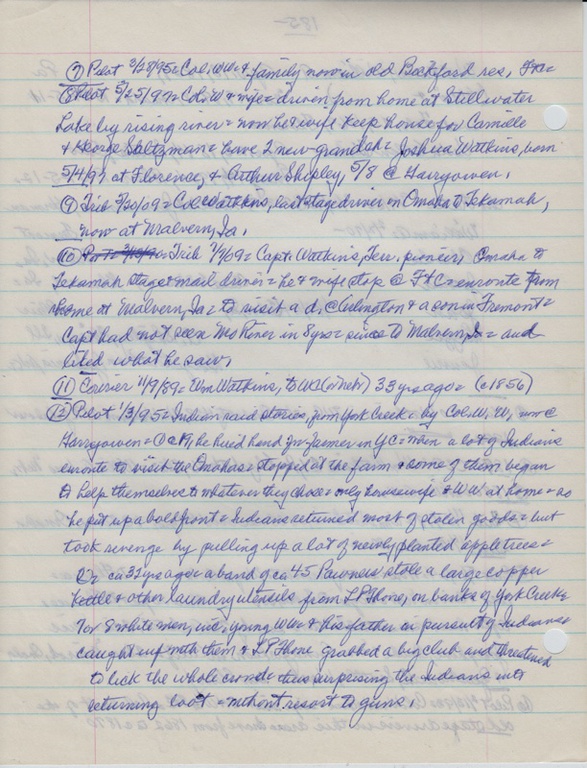 ⑦ Pilot 3/28/95 = Col. WW & family now in old Beckford res, Ft C =
⑧ Pilot 5/25/97 = Col. W & wife = driven from home at Stillwater
Lake by rising river = now he & wife keep house for Camille
& George Saltzman = have 2 new grandch = Joshua Watkins, born
5/4/97 at Florence, & Arthur Shipley, 5/8 @ Harryowen.
⑨ Trib 3/30/09 = Col Watkins, last stage driver on Omaha to Tekamah,
now at Malvern, Ia.
⑩ Trib 7/3/09 = Capt. Watkins, Terr. pioneer, Omaha to
Tekamah stage & mail driver = he & wife stop @ Ft C = enroute from
home at Malvern, Ia = to visit a d. @ Arlington & a son in Fremont =
Capt had not seen Mo River in 8 yrs = since to Malvern, Ia = and
liked what he saw.
⑪ Courier 11/9/89 = Wm Watkins, to WC (or Nebr) 33 yrs ago = (c 1856)
⑫ Pilot 1/3/95 = Indian raid stories, from York Creek = by Col. W. W., now @
Harryowen = he hired hand for farmer in YC = when a lot of Indians
enroute to visit the Omahas = stopped at the farm & some of them began
to help themselves to whatever they chose = only housewife & WW at home = so
he put up a bold front & Indians returned most of stolen goods = but
took revenge by pulling up a lot of newly planted apple trees =
Or ca 32 yrs ago = a band of ca 45 Pawnees stole a large copper
kettle & other laundry utensils from LP Thone, on banks of York Creek =
7 or 8 white men, inc. young WW & his father in pursuit of Indians =
caught up with them & LP Thone grabbed a big club and threatened
to lick the whole crowd = thus surprising the Indians into
returning loot = without resort to guns.